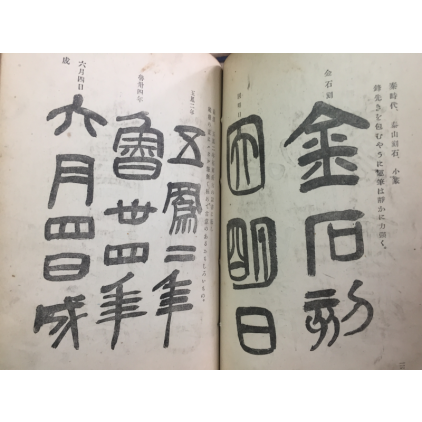 秦時代、泰山刻石、小篆
鋒先きを包むやうに運筆は靜かに力強く。
金石刻
金石刻
因明日
五鳳二年
五鳳二年
魯卅四年
魯卅四年
六月四日成
六月四日
成